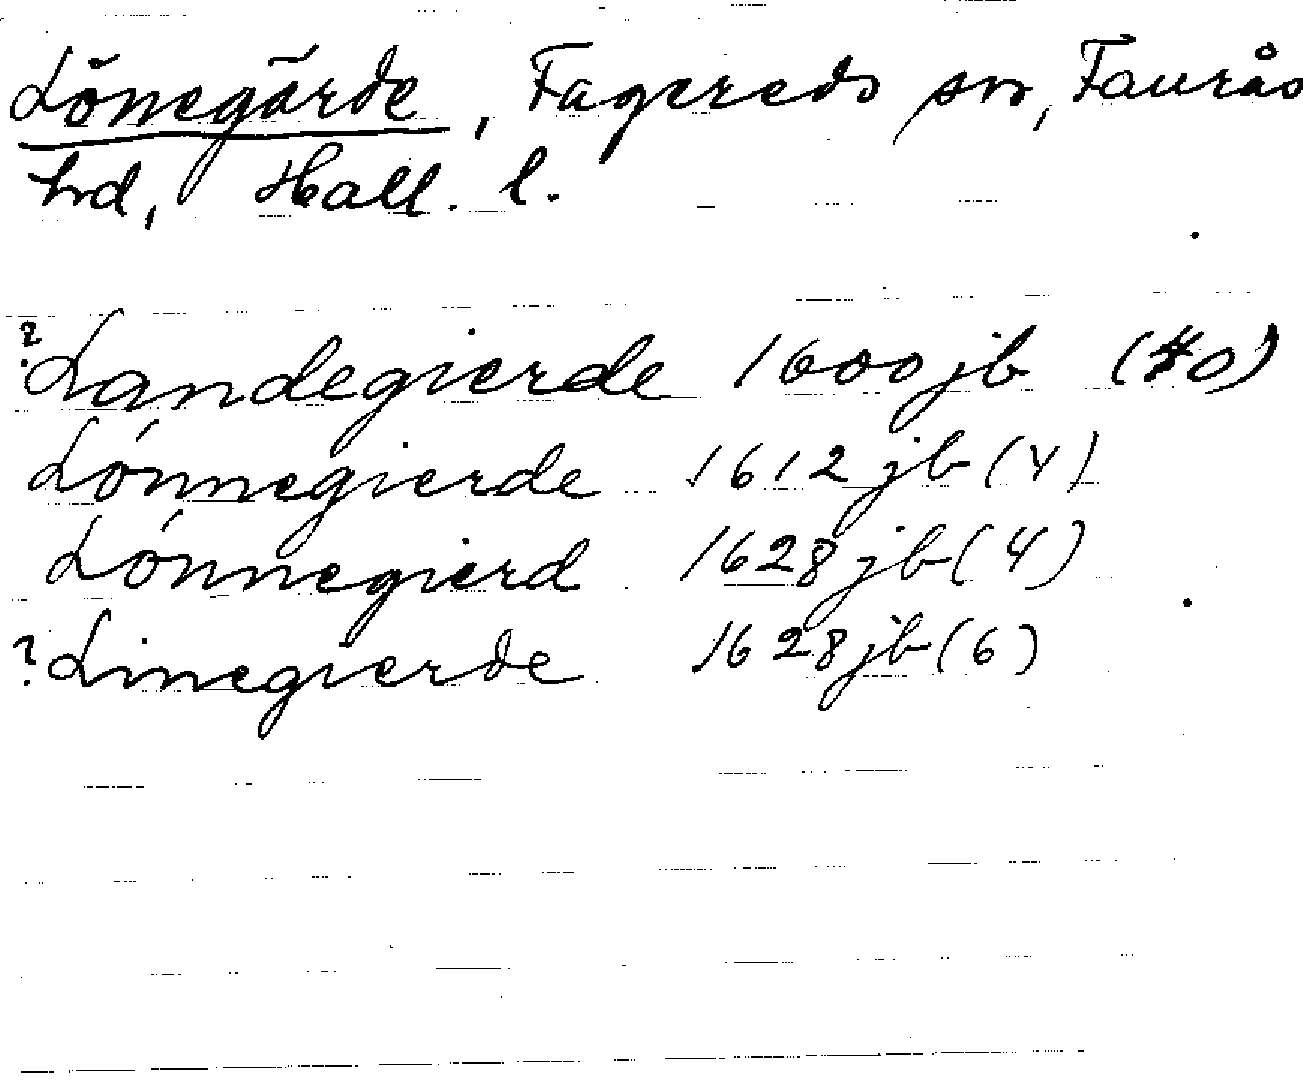 Lönegärde, Fagereds sn, Faurås
hd, Hall. l.
? Landegierde 1600 jb (10)
Lónnegierde 1612 jb (4)
Lónnegierd 1628 jb (4)
? Linegierde 1628 jb (6)